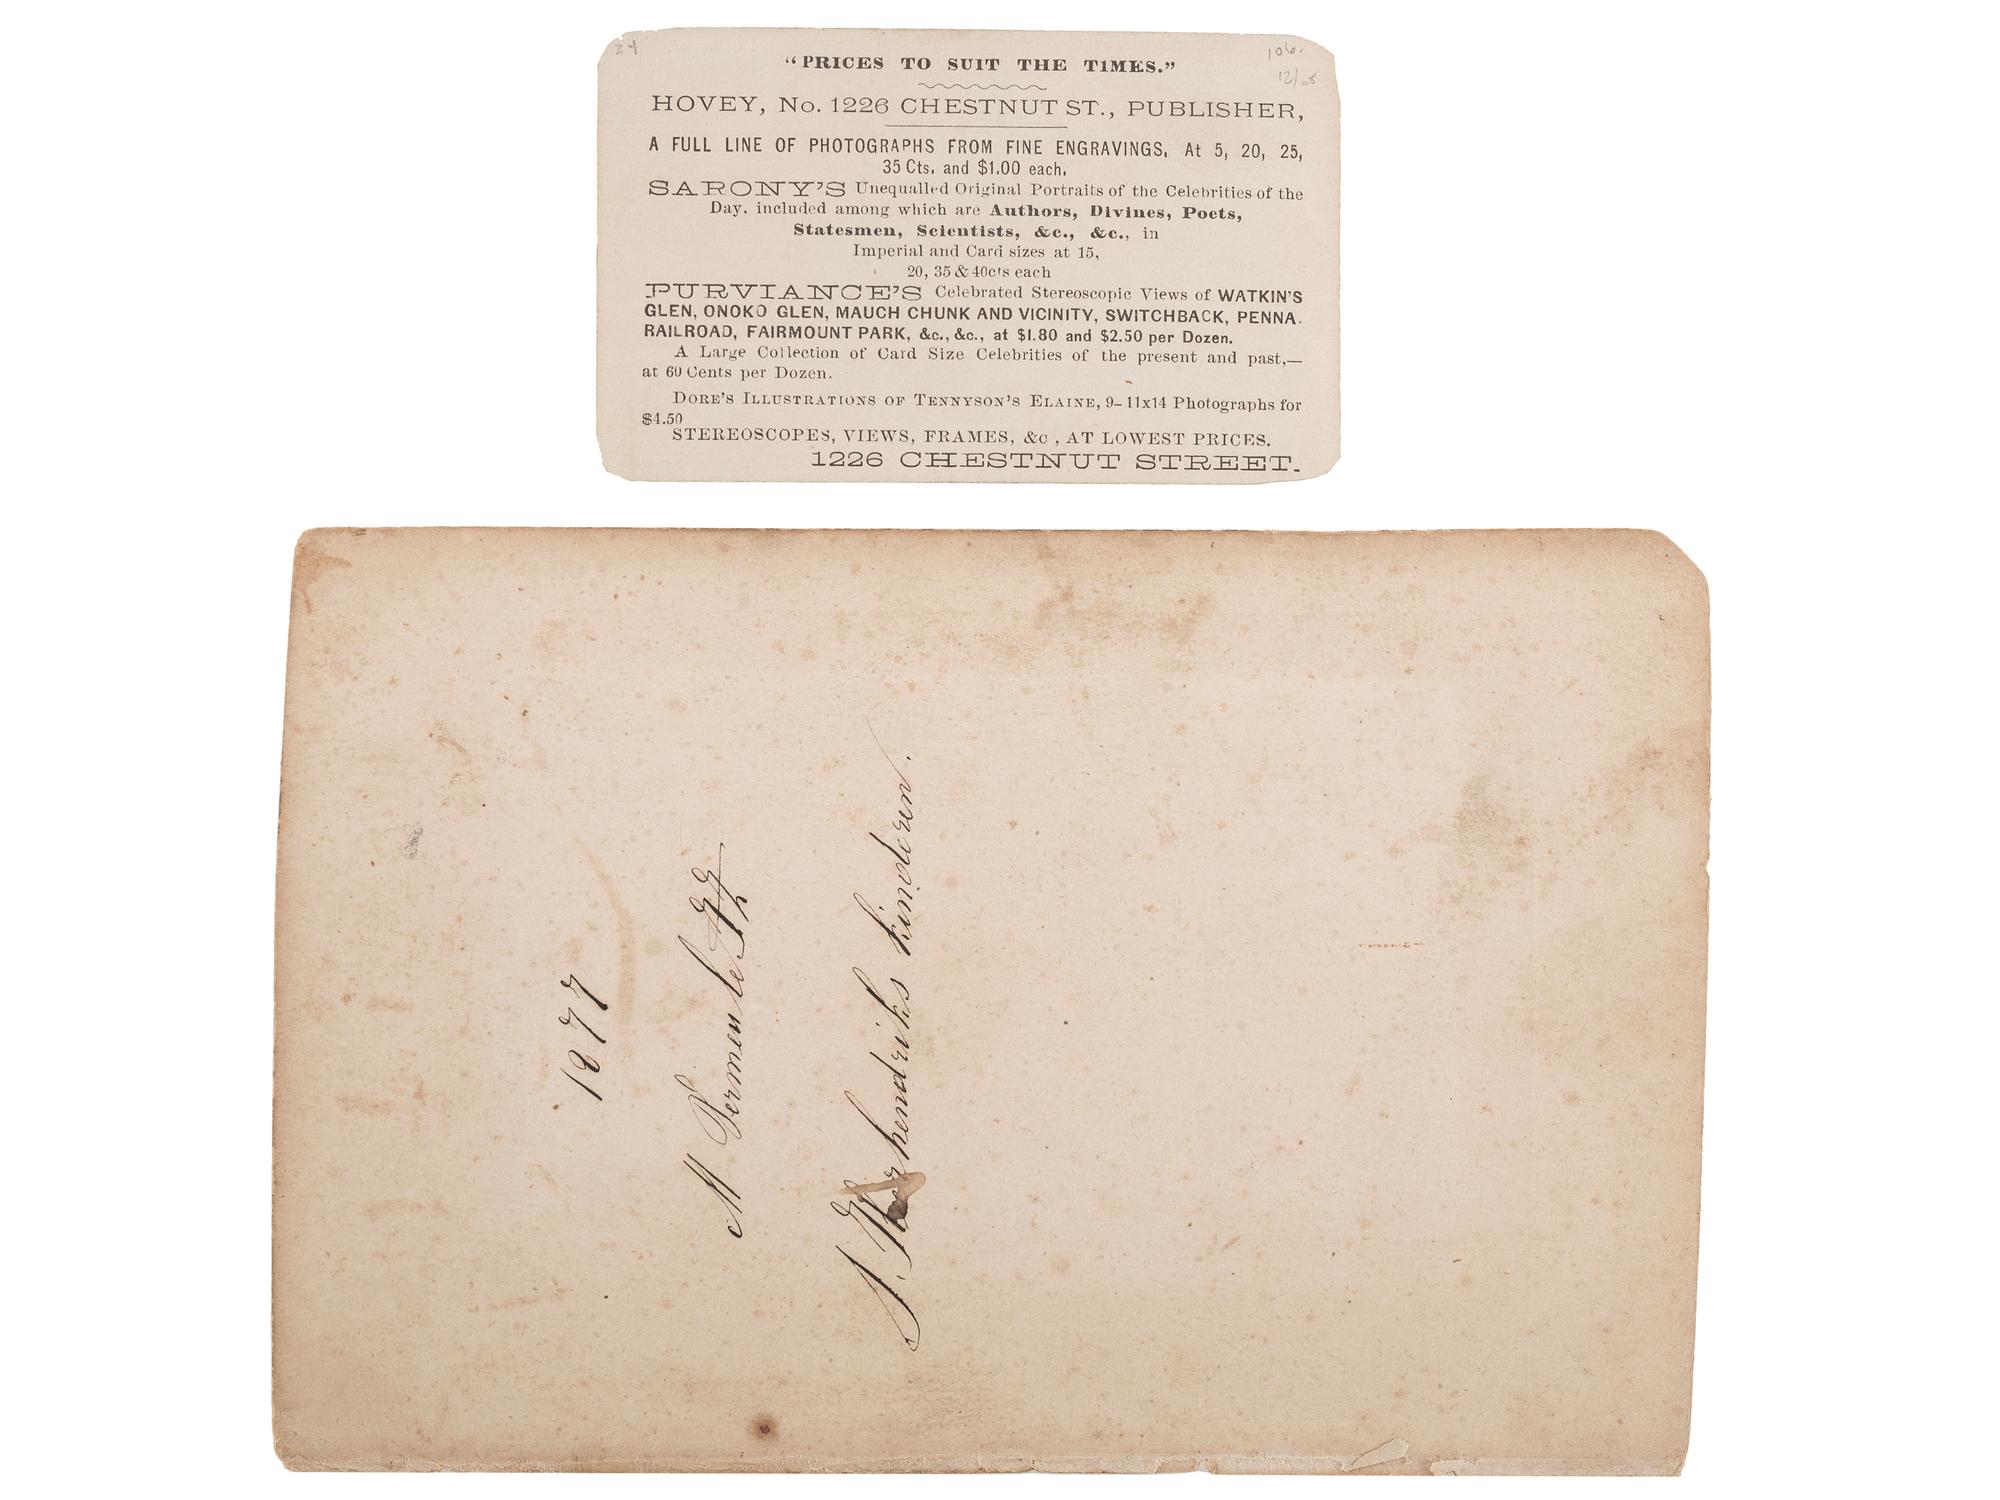 24
106.
12/05
“PRICES TO SUIT THE TIMES.”
HOVEY, No. 1226 CHESTNUT ST., PUBLISHER,
A FULL LINE OF PHOTOGRAPHS FROM FINE ENGRAVINGS, At 5, 20, 25,
35 Cts. and $1.00 each.
SARONY’S Unequalled Original Portraits of the Celebrities of the
Day, included among which are Authors, Divines, Poets,
Statesmen, Scientists, &c., &c., in
Imperial and Card sizes at 15,
20, 35 & 40cts each
PURVIANCE’S Celebrated Stereoscopic Views of WATKIN’S
GLEN, ONOKO GLEN, MAUCH CHUNK AND VICINITY, SWITCHBACK, PENNA.
RAILROAD, FAIRMOUNT PARK, &c., &c., at $1.80 and $2.50 per Dozen.
A Large Collection of Card Size Celebrities of the present and past,—
at 60 Cents per Dozen.
DORE’S ILLUSTRATIONS OF TENNYSON’S ELAINE, 9–11x14 Photographs for
$4.50
STEREOSCOPES, VIEWS, FRAMES, &c , AT LOWEST PRICES.
1226 CHESTNUT STREET.
1877
M Vermeule
kinderen.